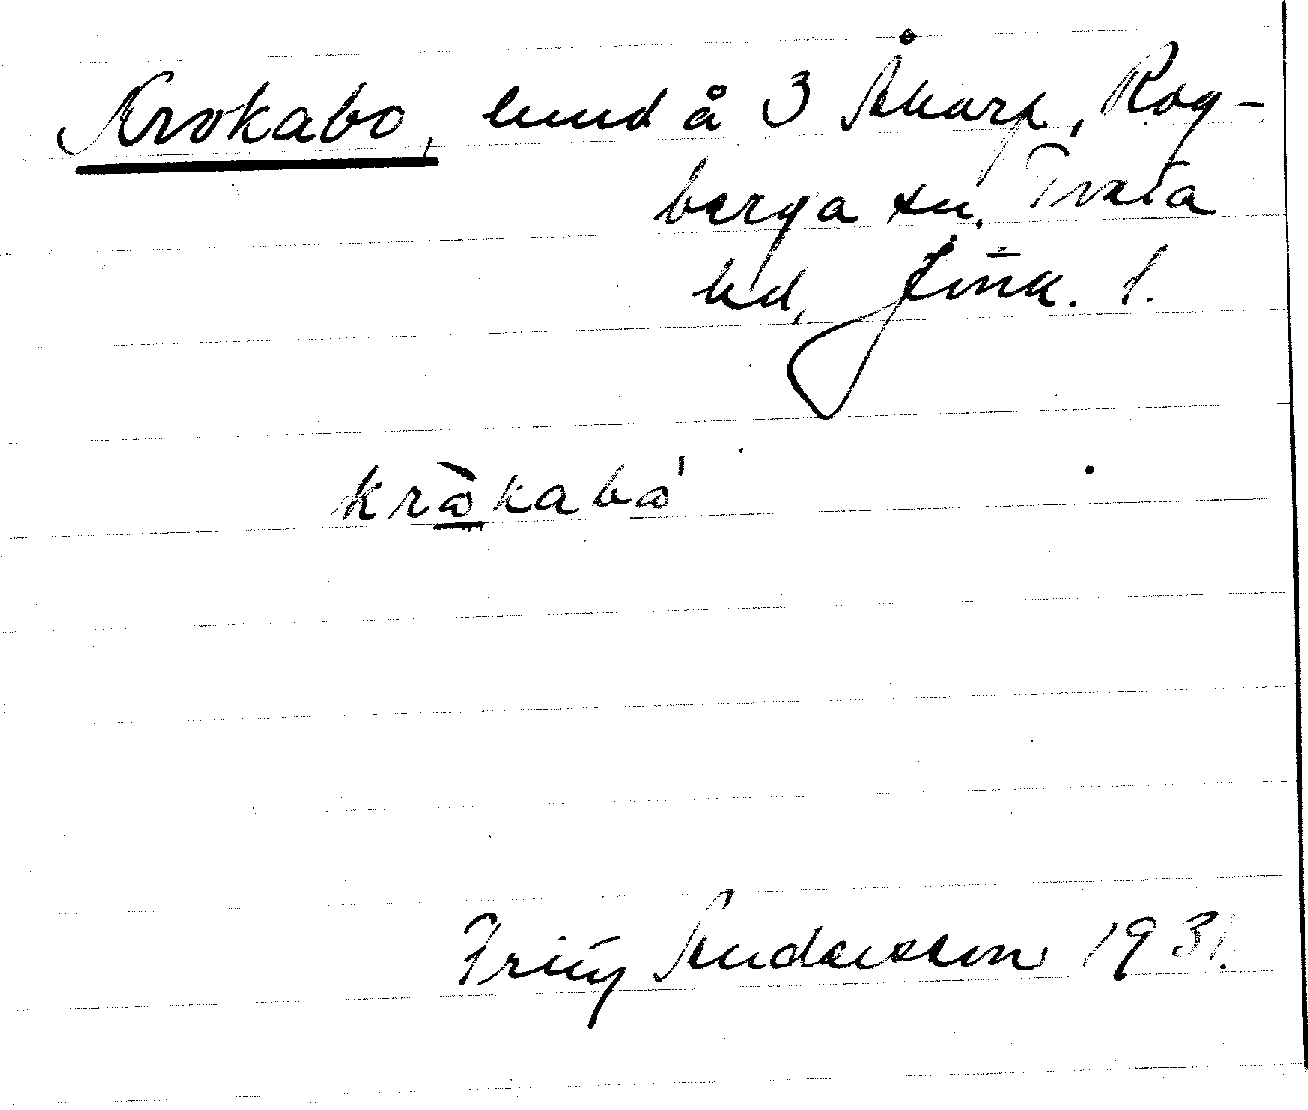 Krokabo, lund å 3 Åkarp, Rog-
berga sn. Tveta
hd, Jönk. l.
kròkabo'
Fritz Andersson 1931.